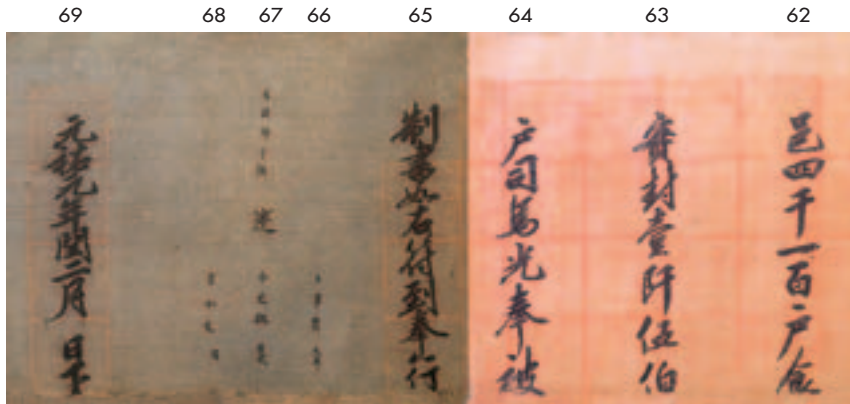 69 68 67 66 65 64 63 62
邑四千一百户食
實封壹阡伍伯
户司馬光奉被
制書如右符到奉行
元祐元年閏二月 日下